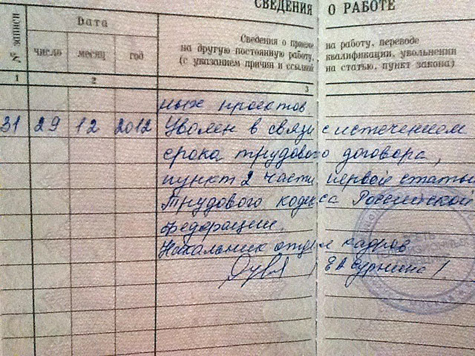 СВЕДЕНИЯ О РАБОТЕ
№ записи
Дата
число
месяц
год
Сведения о приеме на работу, переводе
на другую постоянную работу, квалификации, увольнении
(с указанием причин и ссылкой на статью, пункт закона)
2
3
ных проектов
31 29 12 2012 Уволен в связи с истечением
срока трудового договора,
пункт 2 части первой статьи
Трудового кодекса Российской
Федерации.
Начальник отдела кадров